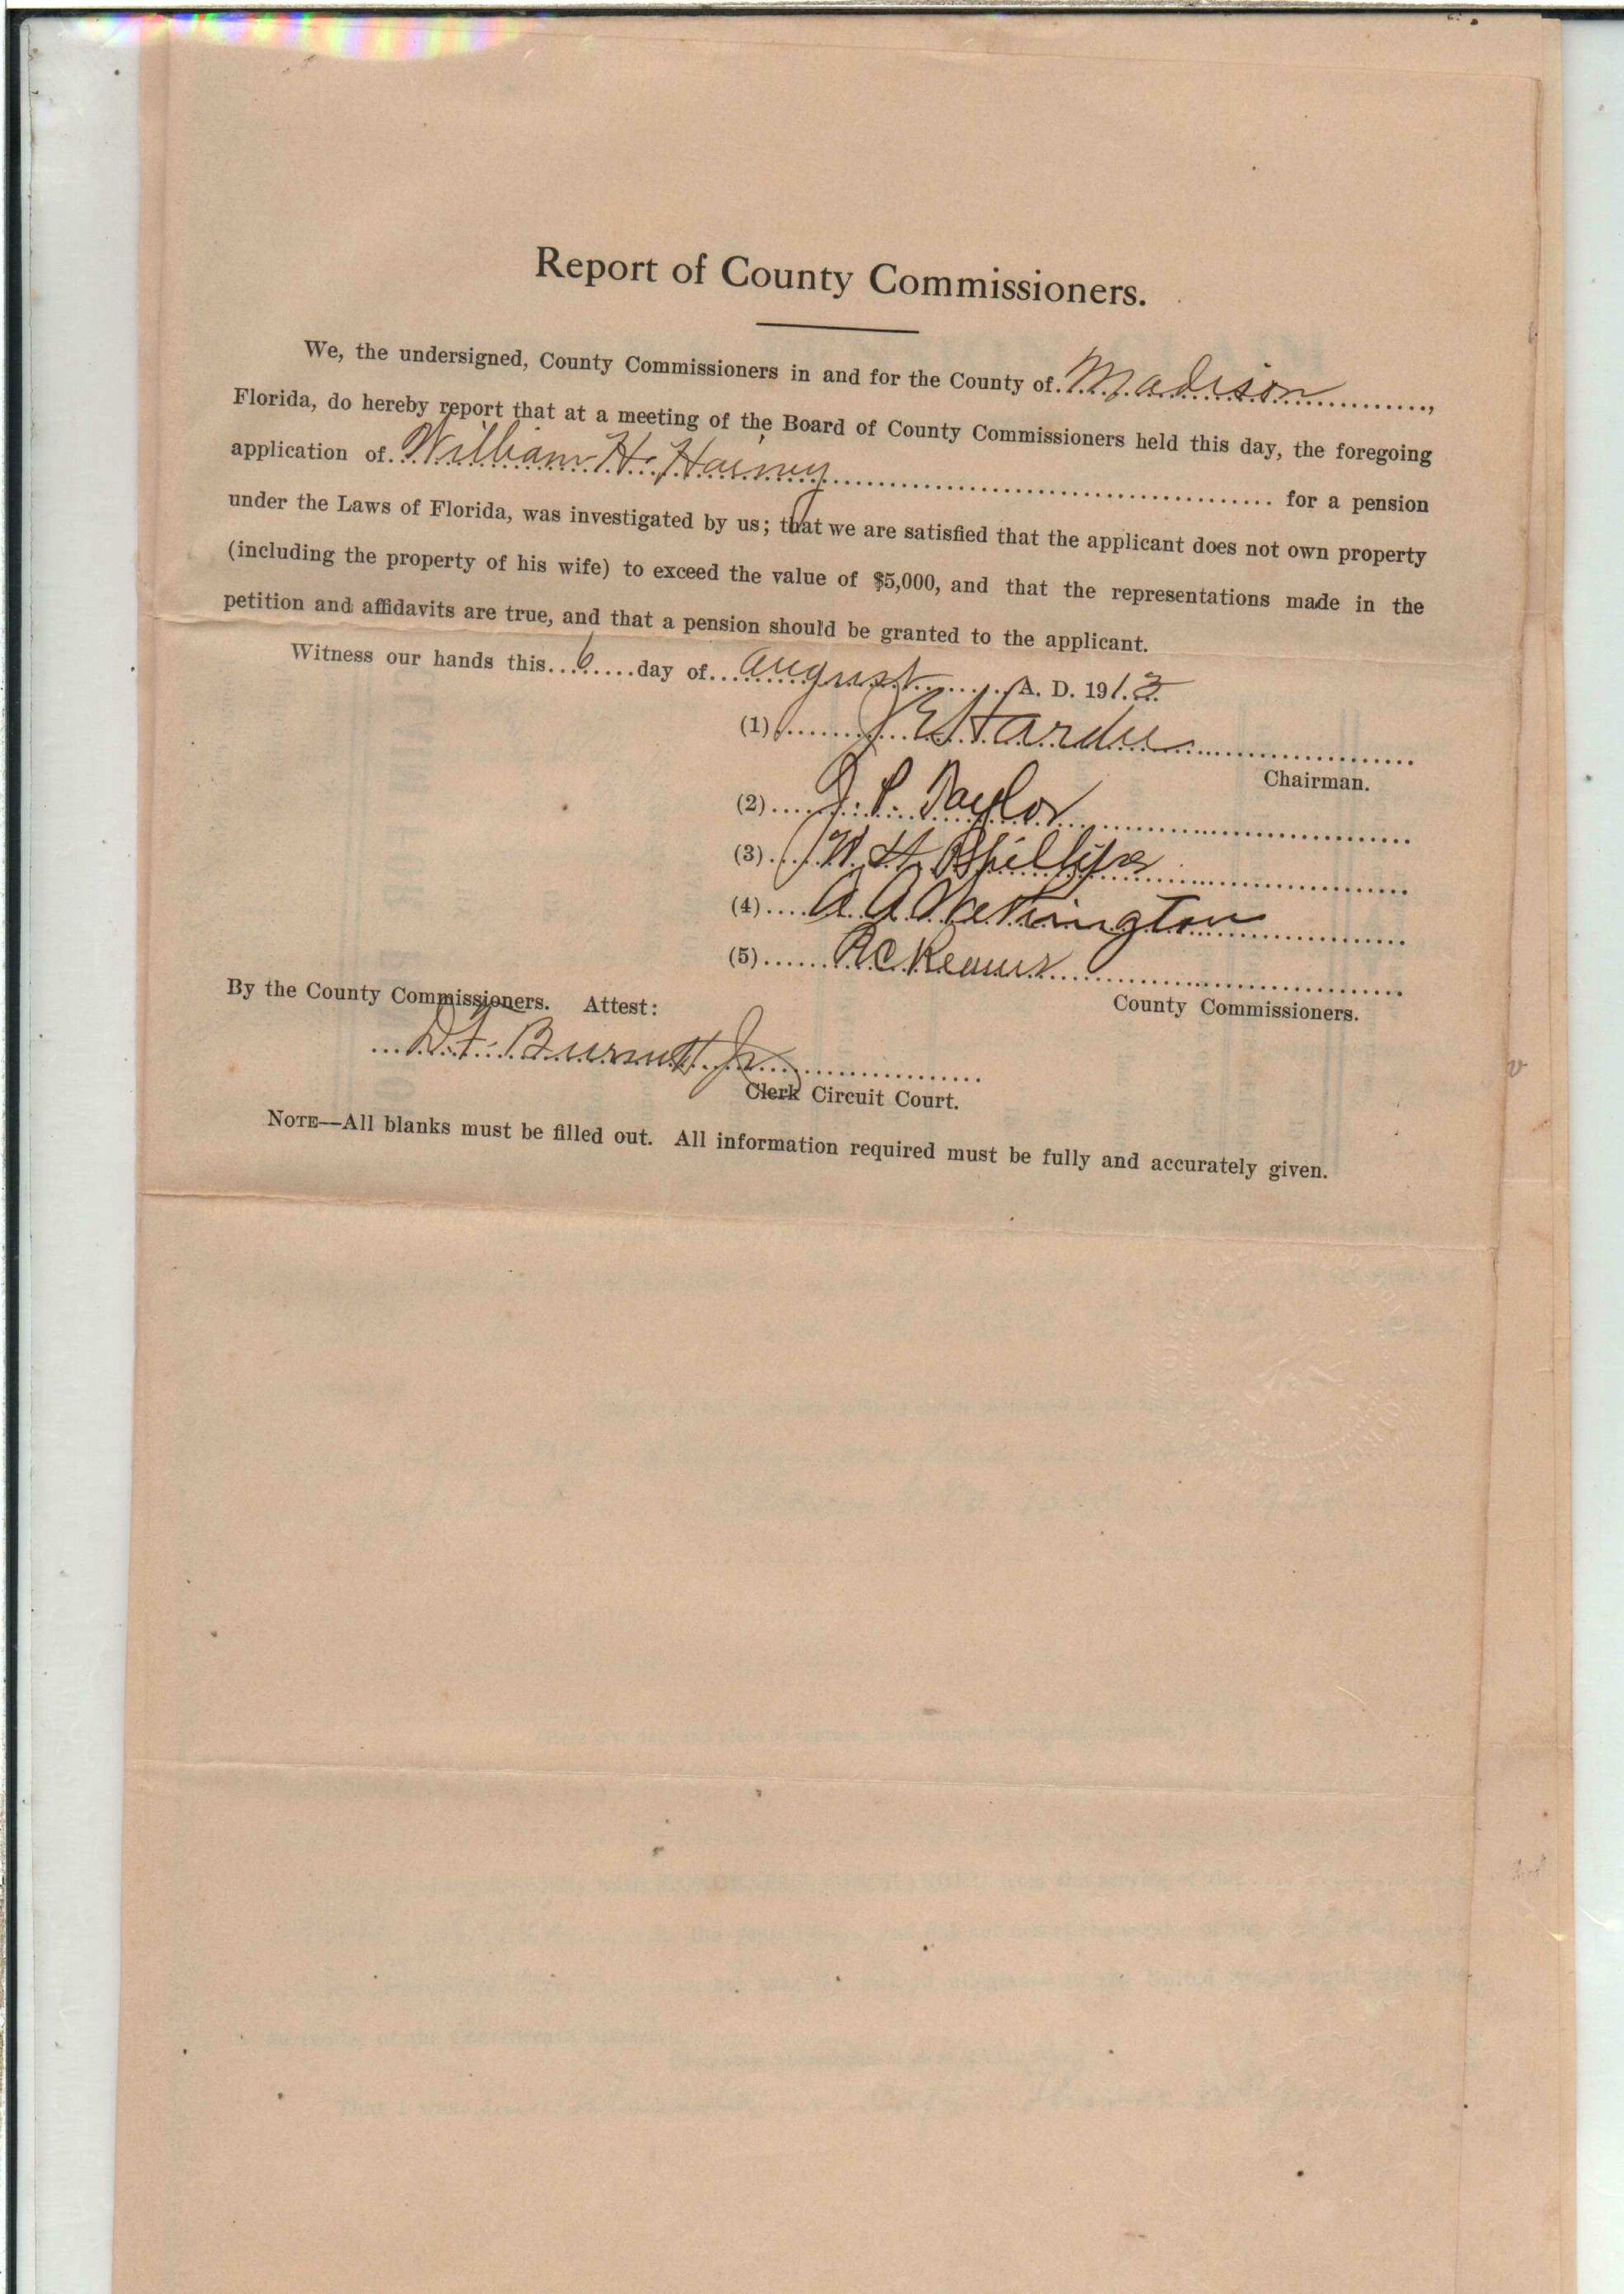 Report of County Commissioners.
We, the undersigned, County Commissioners in and for the County of Madison,
Florida, do hereby report that at a meeting of the Board of County Commissioners held this day, the foregoing
application of William H. Hainey for a pension
under the Laws of Florida, was investigated by us; that we are satisfied that the applicant does not own property
(including the property of his wife) to exceed the value of $5,000, and that the representations made in the
petition and affidavits are true, and that a pension should be granted to the applicant.
Witness our hands this 6 day of August A. D. 1913
(1) J E Hardee
Chairman.
(2) J. P. Taylor
(3) W. H. Phillips
(4) A. A. Wethington
(5) R C Reams
By the County Commissioners. Attest:
County Commissioners.
D. F. Burnett Jr
Clerk Circuit Court.
NOTE—All blanks must be filled out. All information required must be fully and accurately given.